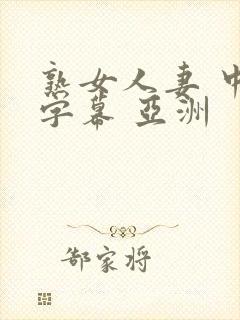 熟女人妻 中
字幕 亞洲
郜家将